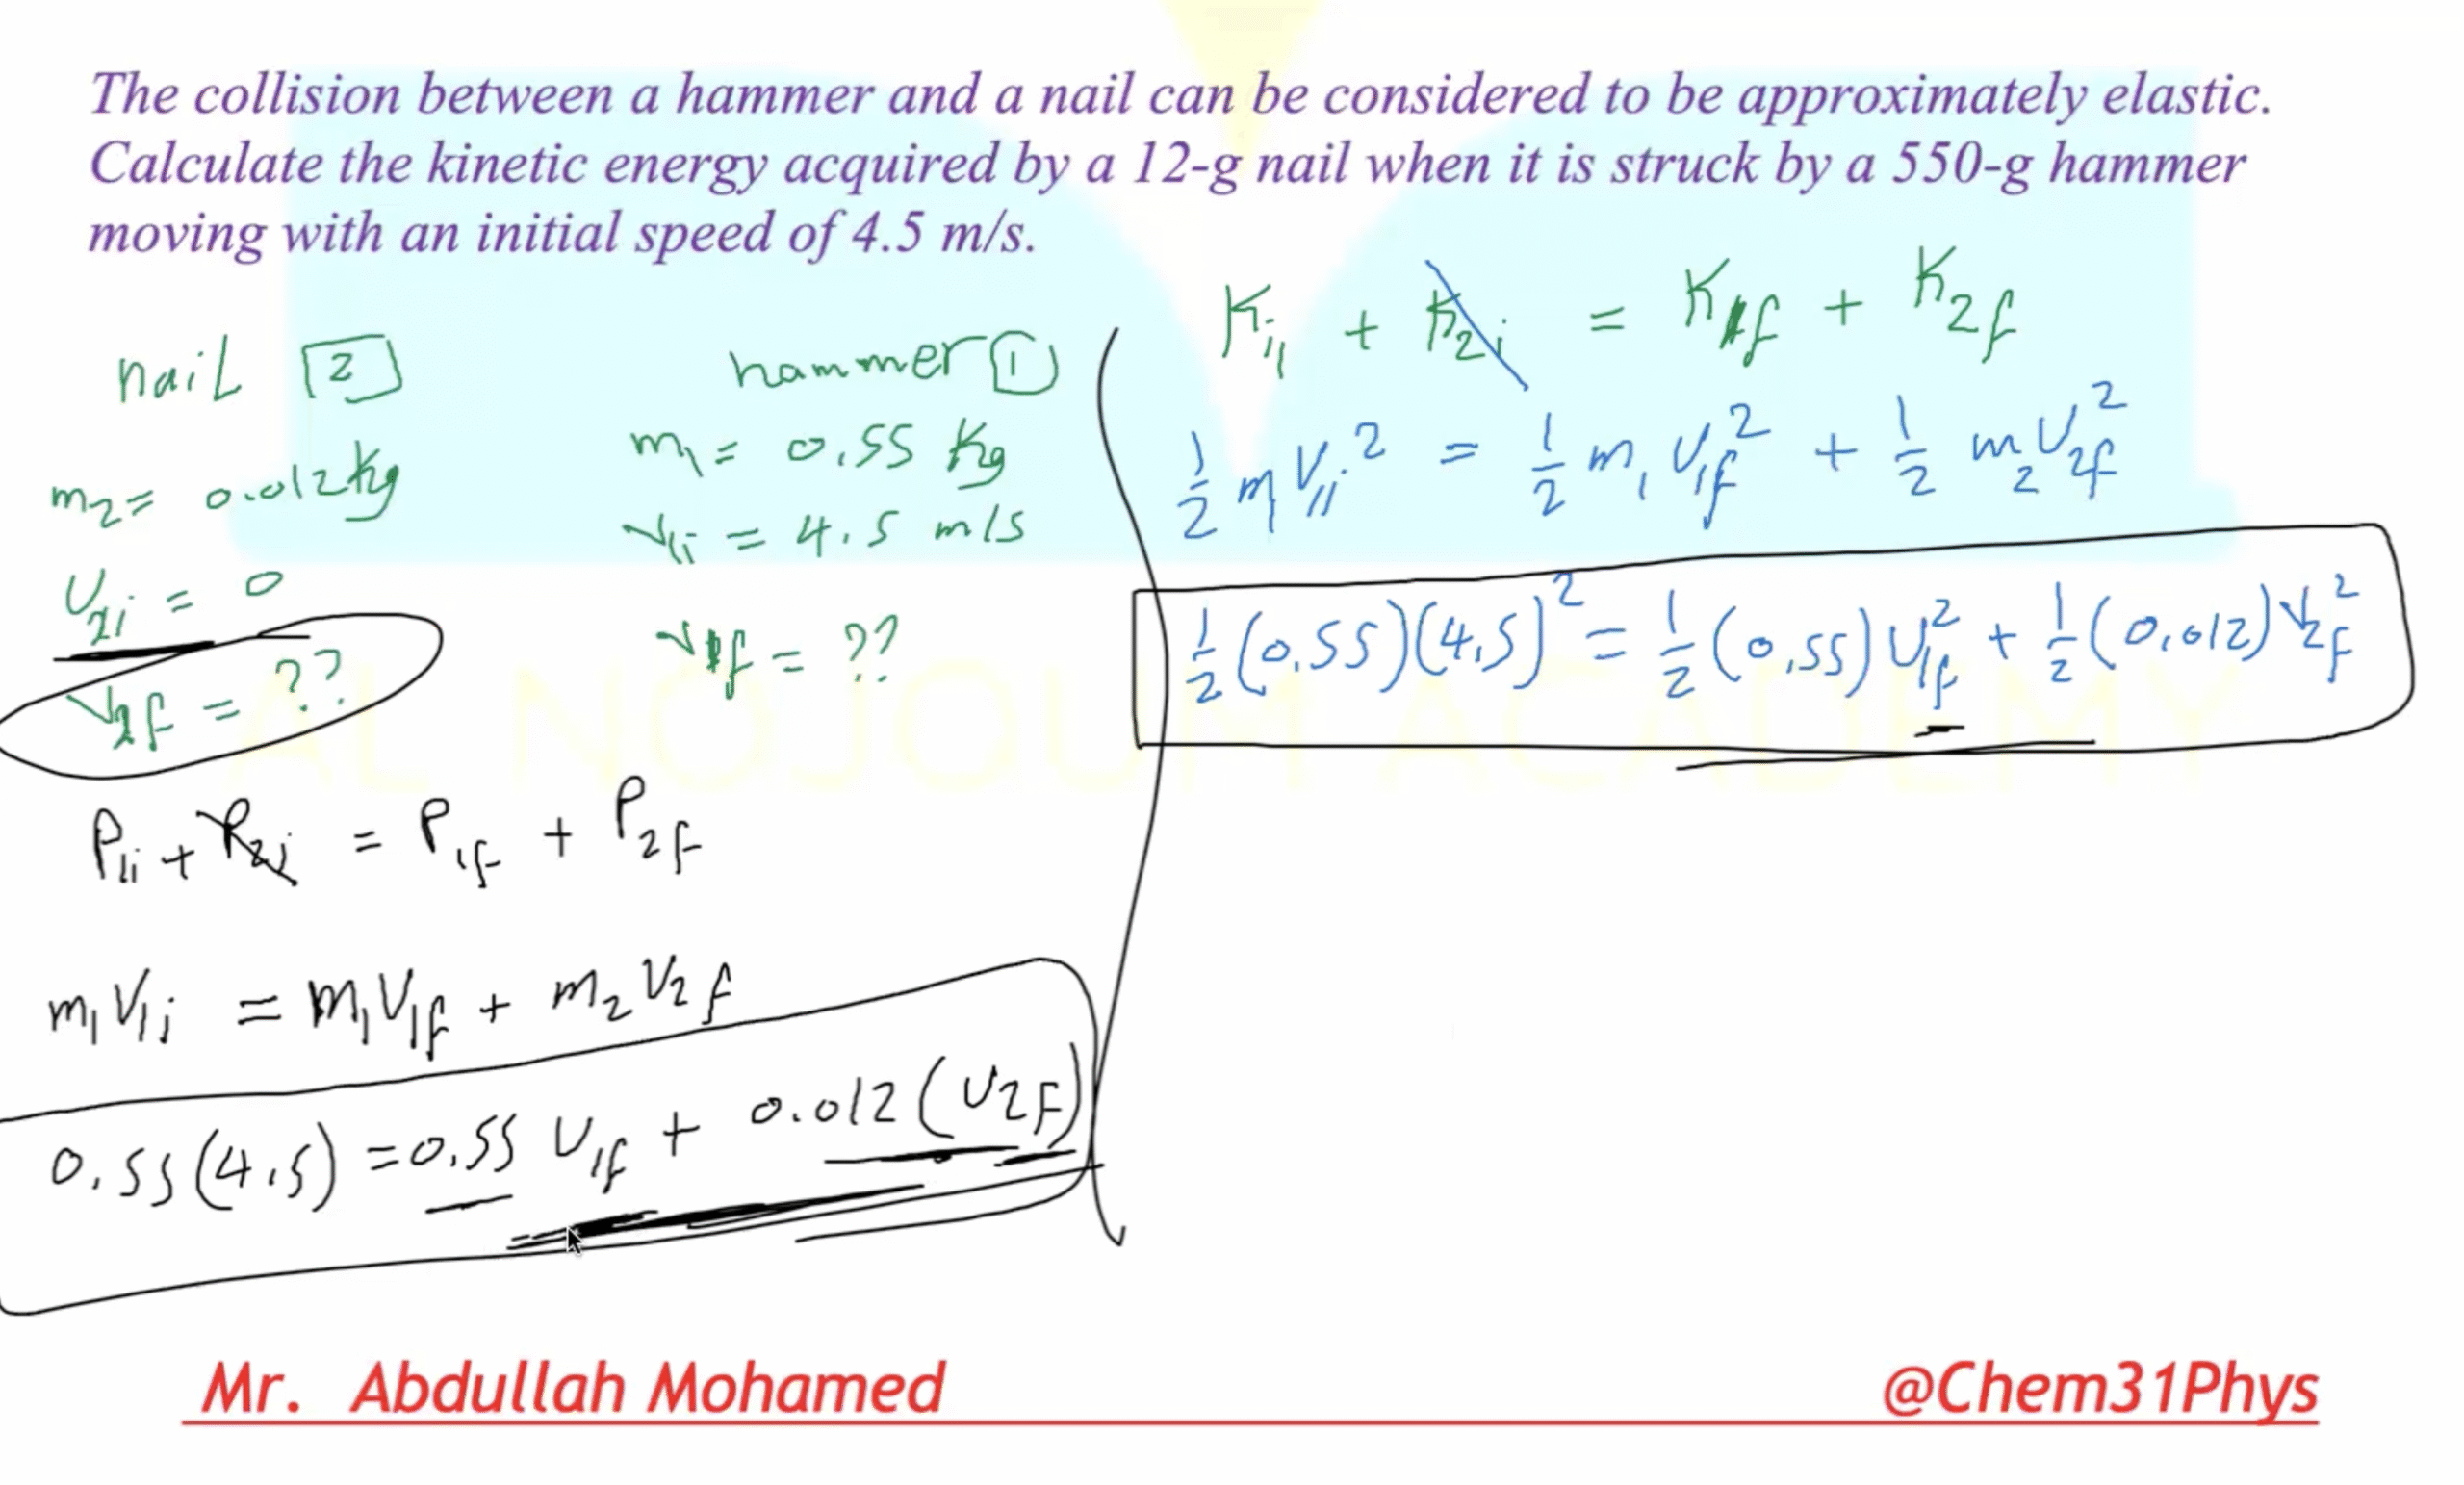 The collision between a hammer and a nail can be considered to be approximately elastic.
Calculate the kinetic energy acquired by a 12-g nail when it is struck by a 550-g hammer
moving with an initial speed of 4.5 m/s.
nail 2
m₂ = 0.012 kg
v₂i = 0
v₂f = ??
hammer 1
m₁ = 0.55 kg
v₁i = 4.5 m/s
v₁f = ??
P₁i + P₂i = P₁f + P₂f
m₁v₁i = m₁v₁f + m₂v₂f
0.55(4.5) = 0.55 v₁f + 0.012(v₂f)
Ki₁ + K₂i = K₁f + K₂f
½ m v₁i² = ½ m₁ v₁f² + ½ m₂ v₂f²
½(0.55)(4.5)² = ½(0.55)v₁f² + ½(0.012)v₂f²
AL NOJOUM ACADEMY
Mr. Abdullah Mohamed
@Chem31Phys